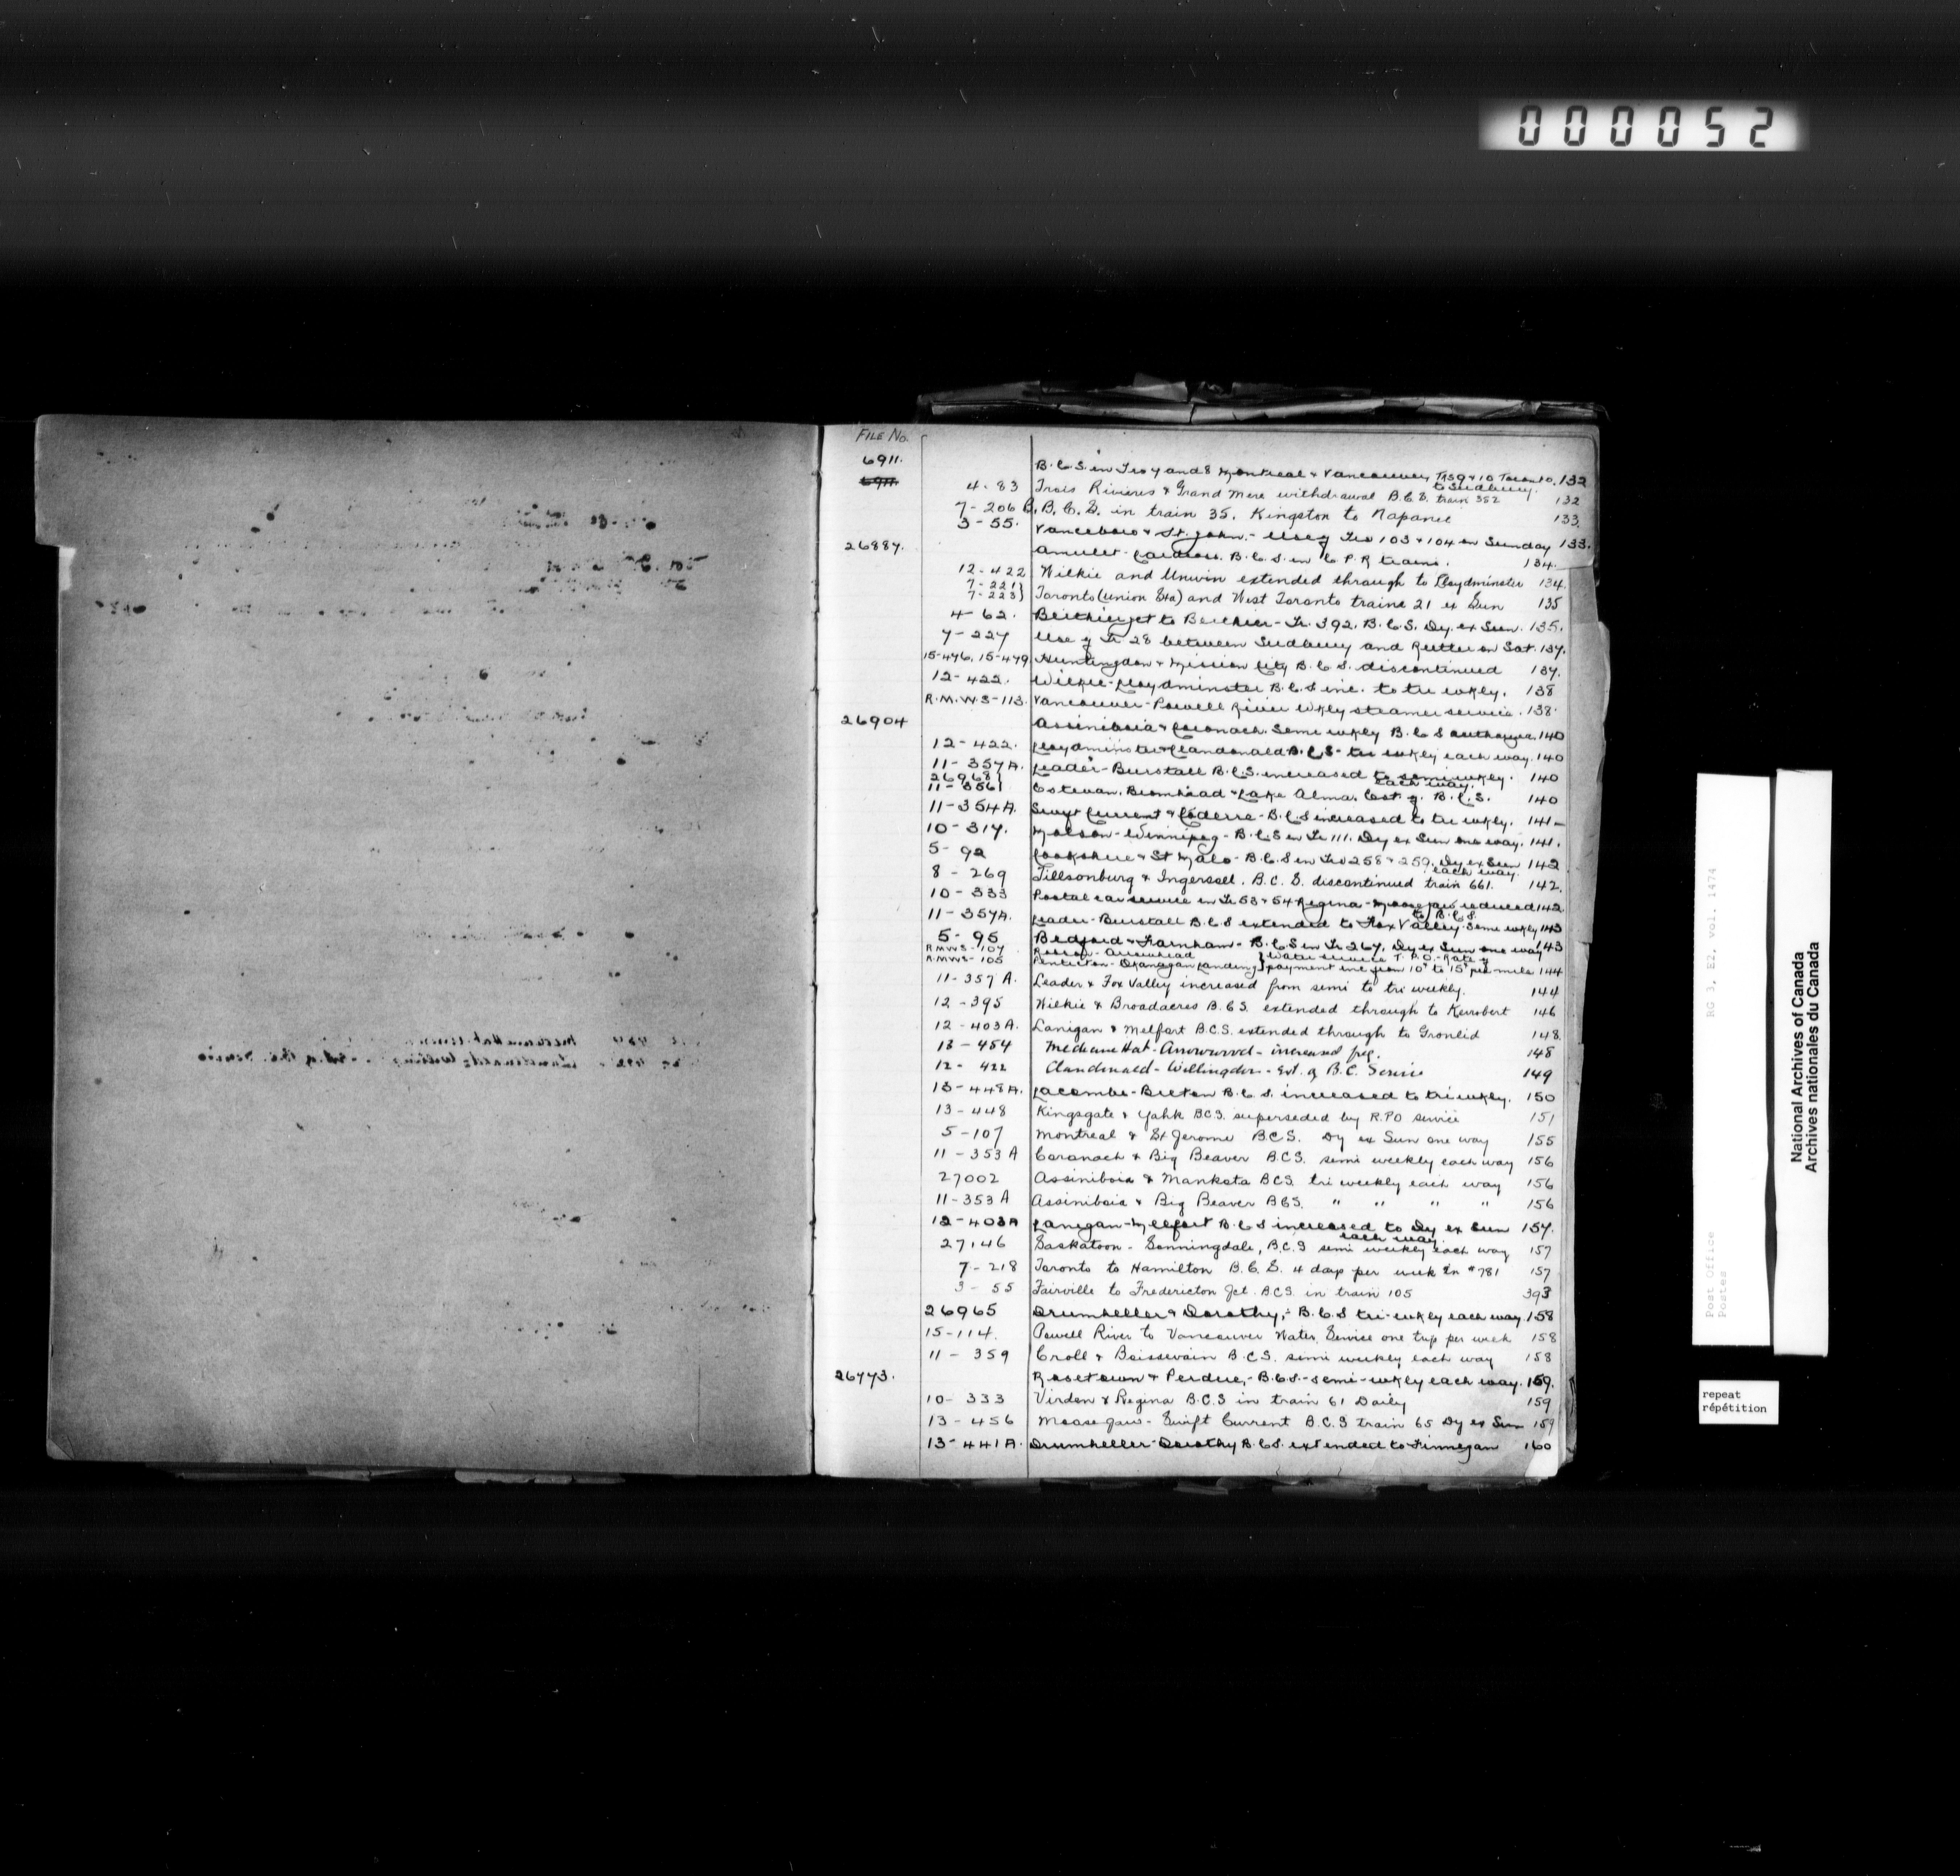 000052
FILE NO.
6911. B.C.S. in Trs 7 and 8 Montreal & Vancouver, Trs 9 & 10 Toronto, 132
to Sudbury.
6911.
4-83 Trois Rivieres & Grand Mere withdrawal B.C.S. train 352 132
7-206 B. B.C.S. in train 35. Kingston to Napanee 133
3-55. Vanceboro & St. John. - Use of Trs 103 & 104 on Sunday 133.
26887. Amulet - Cardross. B.C.S. in C.P.R trains. 134.
12-422 Wilkie and Unwin extended through to Lloydminster 134.
7-221
7-223 } Toronto (Union Sta) and West Toronto trains 21 ex Sun 135
4-62. to Berthier - Tr. 392. B.C.S. Dy. ex Sun. 135.
7-227 Use of Tr 28 between Sudbury and Rutter on Sat. 137.
15-476, 15-479. Huntingdon & Mission City B.C.S. discontinued 137.
12-422. Wilkie-Lloydminster B.C.S inc. to tri wkly. 138
R.M.W.S-113. Vancouver-Powell River Wkly steamer service. 138.
26904 Assiniboia & Coronach. Semi wkly B.C.S authorized 140
12-422. Lloydminster & Clandonald B.C.S - tri wkly each way. 140
11-357A. Leader-Burstall B.C.S. increased to semi wkly. 140
each way.
26968
11-356 } Estevan. Bromhead & Lake Alma. Cost of B.C.S. 140
11-354A. Swift Current & Coderre - B.C.S increased to tri wkly. 141-
10-317. Molson-Winnipeg - B.C.S in Tr 111. Dy ex Sun one way. 141.
5-92 Cookshire & St Malo - B.C.S in Trs 258 & 259. Dy ex Sun 142
each way.
8-269 Tillsonburg & Ingersoll. B.C.S. discontinued train 661. 142.
10-333 Postal car service in Tr 53 & 54 Regina-Moose Jaw reduced 142
to B.C.S.
11-357A. Leader-Burstall B.C.S extended to Fox Valley. Semi wkly 143
5-95 Bedford & Farnham - B.C.S in Tr 267. Dy ex Sun one way 143
R.M.W.S-107 Robson-Arrowhead } Water service T.P.O.-Rate of
R.M.W.S-105 Penticton-Okanagan Landing } payment inc from 10¢ to 15¢ per mile 144
11-357 A. Leader & Fox Valley increased from semi to tri weekly. 144
12-395 Wilkie & Broadacres B.C.S. extended through to Kerrobert 146
12-403A. Lanigan & Melfort B.C.S. extended through to Gronlid 148.
13-454 Medicine Hat-Arrowwood - increased freq. 148
12-422 Clandonald-Willingdon - Ext. of B.C. Service 149
13-448A. Lacombe-Breton B.C.S. increased to tri wkly. 150
13-448 Kingsgate & Yahk B.C.S. superseded by R.P.O service 151
5-107 Montreal & St Jerome B.C.S. Dy ex Sun one way 155
11-353 A Coronach & Big Beaver B.C.S. semi weekly each way 156
27002 Assiniboia & Mankota B.C.S. tri weekly each way 156
11-353 A Assiniboia & Big Beaver B.C.S. " " " " 156
12-403A Lanigan-Melfort B.C.S increased to Dy ex Sun 157.
each way.
27146 Saskatoon - Sonningdale, B.C.S semi weekly each way 157
7-218 Toronto to Hamilton B.C.S. 4 days per week Tr #781 157
3-55 Fairville to Fredericton Jct. B.C.S. in train 105 393
26965 Drumheller & Dorothy, - B.C.S tri-wkly each way. 158
15-114. Powell River to Vancouver Water Service one trip per week 158
11-359 Croll & Boissevain B.C.S. semi weekly each way 158
26773. Rosetown & Perdue, - B.C.S. - semi-wkly each way. 159.
10-333 Virden & Regina B.C.S in train 61 Daily 159
13-456 Moose Jaw - Swift Current B.C.S train 65 Dy ex Sun 159
13-441A. Drumheller-Dorothy B.C.S. extended to Finnegan 160
Post Office RG 3, E2, vol. 1474
Postes
National Archives of Canada
Archives nationales du Canada
repeat
répétition